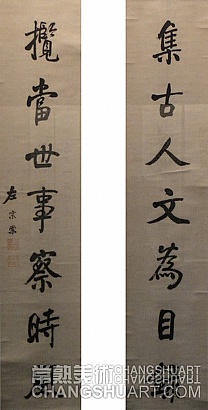 集古人文為目
攬當世事察時
左宗棠
常熟美術 CHANGSHUART
CHANGSHUART.COM